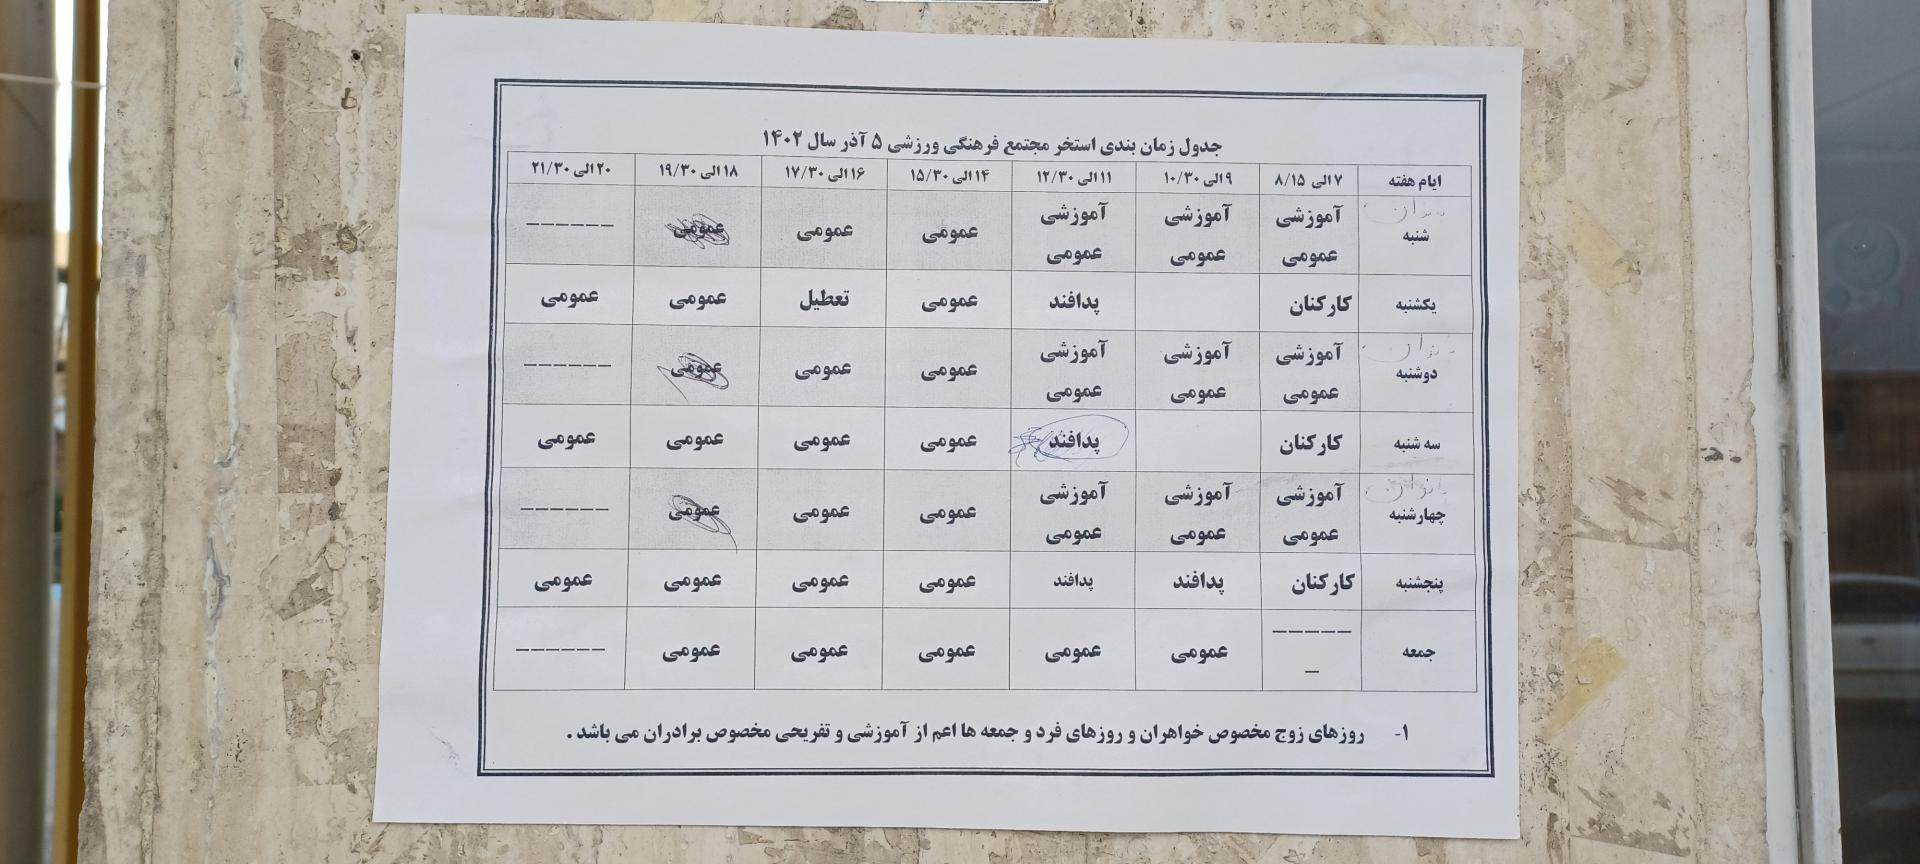 جدول زمان بندی استخر مجتمع فرهنگی ورزشی ۵ آذر سال ۱۴۰۲
ایام هفته ۷ الی ۸/۱۵ ۹ الی ۱۰/۳۰ ۱۱ الی ۱۲/۳۰ ۱۴ الی ۱۵/۳۰ ۱۶ الی ۱۷/۳۰ ۱۸ الی ۱۹/۳۰ ۲۰ الی ۲۱/۳۰
بانوان آموزشی آموزشی آموزشی
شنبه عمومی عمومی عمومی عمومی عمومی عمومی ------
یکشنبه کارکنان پدافند عمومی تعطیل عمومی عمومی
بانوان آموزشی آموزشی آموزشی
دوشنبه عمومی عمومی عمومی عمومی عمومی عمومی ------
سه شنبه کارکنان پدافند عمومی عمومی عمومی عمومی
بانوان آموزشی آموزشی آموزشی
چهارشنبه عمومی عمومی عمومی عمومی عمومی عمومی ------
پنجشنبه کارکنان پدافند پدافند عمومی عمومی عمومی عمومی
جمعه ------ عمومی عمومی عمومی عمومی عمومی ------
۱- روزهای زوج مخصوص خواهران و روزهای فرد و جمعه ها اعم از آموزشی و تفریحی مخصوص برادران می باشد .